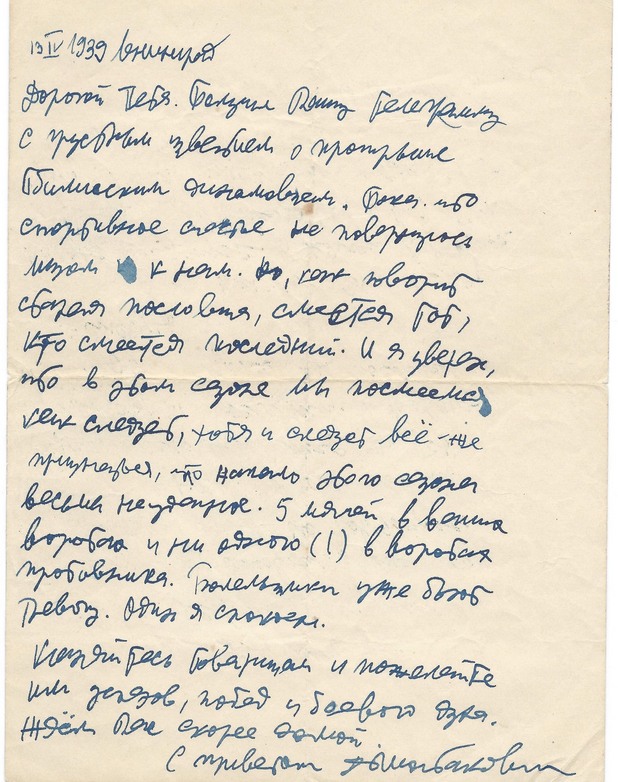 13 IV 1939 Ленинград
Дорогой Петя. Получил Вашу телеграмму
с грустным известием о проигрыше
Тбилисским динамовцам. Пока что
спортивное счастье не повернулось
лицом к нам. Но, как говорит
старая пословица, смеётся тот,
кто смеётся последний. И я уверен,
что в этом сезоне мы посмеёмся
как следует, хотя и следует всё-же
признаться, что начало этого сезона
весьма неудачное. 5 мячей в ваши
ворота и ни одного (!) в ворота
противника. Болельщики уже бьют
тревогу. Один я спокоен.
Кланяйтесь товарищам и пожелайте
им успехов, побед и боевого духа.
Ждём Вас скорее домой
С приветом